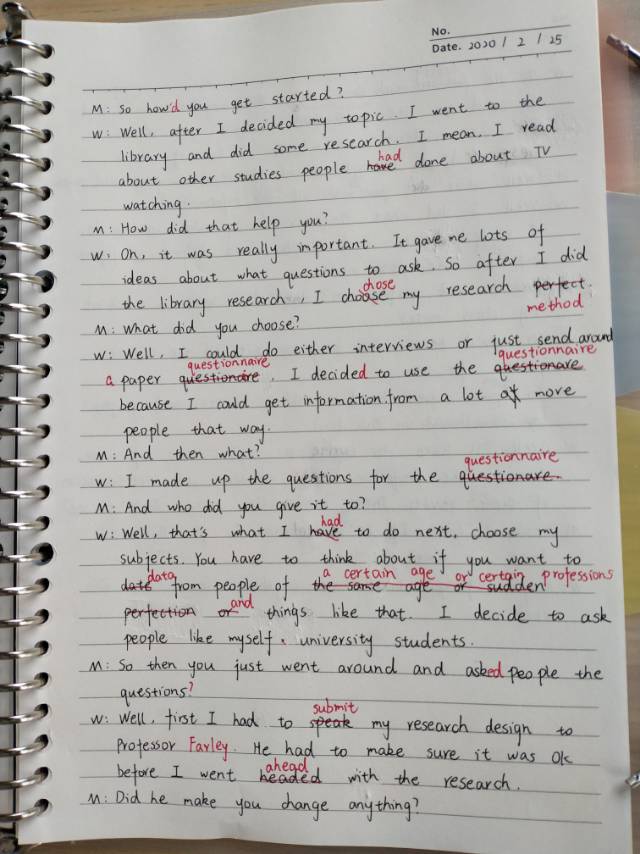 No.
Date. 2020 / 2 / 25
M: So how'd you get started?
W: Well, after I decided my topic. I went to the
library and did some research. I mean, I read
had
about other studies people have done about TV
watching.
M: How did that help you?
W: Oh, it was really important. It gave me lots of
ideas about what questions to ask. So after I did
chose
the library research, I choose my research perfect.
method
M: What did you choose?
W: Well, I could do either interviews or just send around
questionnaire questionnaire
a paper questionare. I decided to use the questionare
because I could get information from a lot of more
people that way.
M: And then what?
questionnaire
W: I made up the questions for the questionare.
M: And who did you give it to?
had
W: Well, that's what I have to do next, choose my
subjects. You have to think about if you want to
data a certain age or certain professions
date from people of the same age or sudden
and
perfection or things like that. I decide to ask
people like myself, university students.
M: So then you just went around and asked people the
questions?
submit
W: Well, first I had to speak my research design to
Professor Farley. He had to make sure it was Ok
ahead
before I went headed with the research.
M: Did he make you change anything?